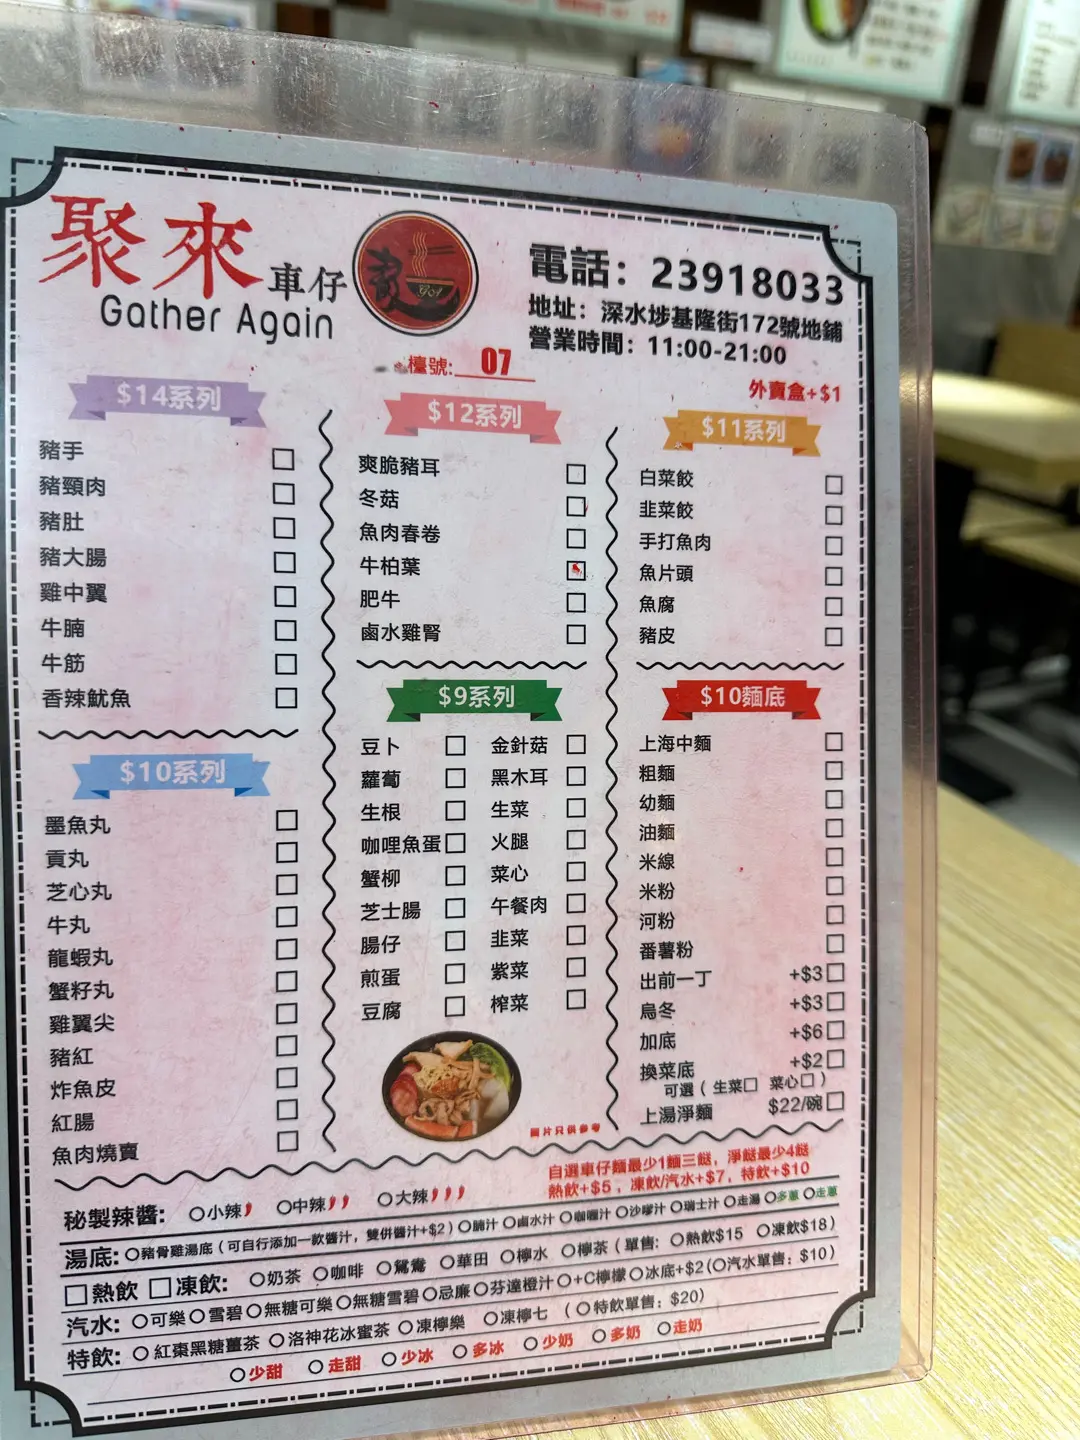 聚來車仔
Gather Again
Got
電話：23918033
地址：深水埗基隆街172號地鋪
營業時間：11:00-21:00
檯號: 07
外賣盒+$1
$14系列
豬手 □
豬頸肉 □
豬肚 □
豬大腸 □
雞中翼 □
牛腩 □
牛筋 □
香辣魷魚 □
$10系列
墨魚丸 □
貢丸 □
芝心丸 □
牛丸 □
龍蝦丸 □
蟹籽丸 □
雞翼尖 □
豬紅 □
炸魚皮 □
紅腸 □
魚肉燒賣 □
$12系列
爽脆豬耳 □
冬菇 □
魚肉春卷 □
牛柏葉 □
肥牛 □
鹵水雞腎 □
$9系列
豆卜 □ 金針菇 □
蘿蔔 □ 黑木耳 □
生根 □ 生菜 □
咖哩魚蛋 □ 火腿 □
蟹柳 □ 菜心 □
芝士腸 □ 午餐肉 □
腸仔 □ 韭菜 □
煎蛋 □ 紫菜 □
豆腐 □ 榨菜 □
圖片只供參考
$11系列
白菜餃 □
韭菜餃 □
手打魚肉 □
魚片頭 □
魚腐 □
豬皮 □
$10麵底
上海中麵 □
粗麵 □
幼麵 □
油麵 □
米線 □
米粉 □
河粉 □
番薯粉 □
出前一丁 +$3 □
烏冬 +$3 □
加底 +$6 □
換菜底 +$2 □
可選（生菜□ 菜心□）
上湯淨麵 $22/碗 □
自選車仔麵最少1麵三餸，淨餸最少4餸
熱飲+$5，凍飲/汽水+$7，特飲+$10
秘製辣醬: ○小辣 ○中辣 ○大辣
湯底: ○豬骨雞湯底（可自行添加一款醬汁，雙併醬汁+$2）○腩汁 ○鹵水汁 ○咖喱汁 ○沙嗲汁 ○瑞士汁 ○走湯 ○多蔥 ○走蔥
□熱飲 □凍飲: ○奶茶 ○咖啡 ○鴛鴦 ○華田 ○檸水 ○檸茶（單售: ○熱飲$15 ○凍飲$18）
汽水: ○可樂 ○雪碧 ○無糖可樂 ○無糖雪碧 ○忌廉 ○芬達橙汁 ○+C檸檬 ○冰底+$2 (○汽水單售: $10)
特飲: ○紅棗黑糖薑茶 ○洛神花冰蜜茶 ○凍檸樂 ○凍檸七 （○特飲單售: $20)
○少甜 ○走甜 ○少冰 ○多冰 ○少奶 ○多奶 ○走奶